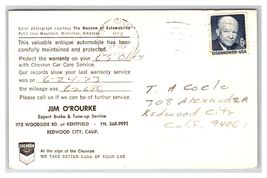 Color photograph courtesy The Museum of Automobiles
Petit Jean Mountain, Morrilton, Arkansas
This valuable antique automobile has been
carefully maintained and protected.
Protect the warranty on your
with Chevron Car Care Service.
Our records show your last warranty service
was on 6-24-73 at
the mileage was
Please call us if we can be of further service.
JIM O'ROURKE
Expert Brake & Tune-up Service
975 WOODSIDE RD. at KENTFIELD - PH. 365-9991
REDWOOD CITY, CALIF.
CHEVRON
At the sign of the Chevron
WE TAKE BETTER CARE OF YOUR CAR
EISENHOWER·USA
T. A Cocle
308 Alexander
Redwood City
Calif. 94061